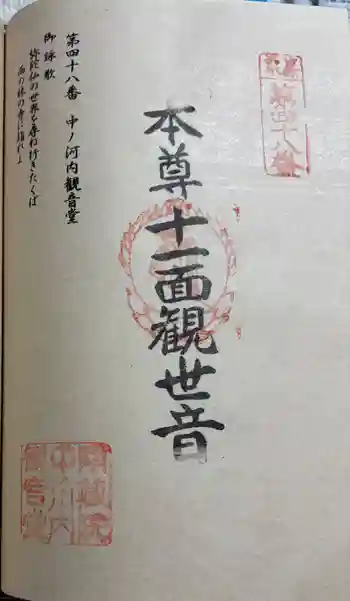 第四十八番
本尊十一面観世音
第四十八番 中ノ河内観音堂
御詠歌
弥陀仏の世界を尋ね行きたくば
西の林の寺に詣れよ
中河内
観音堂